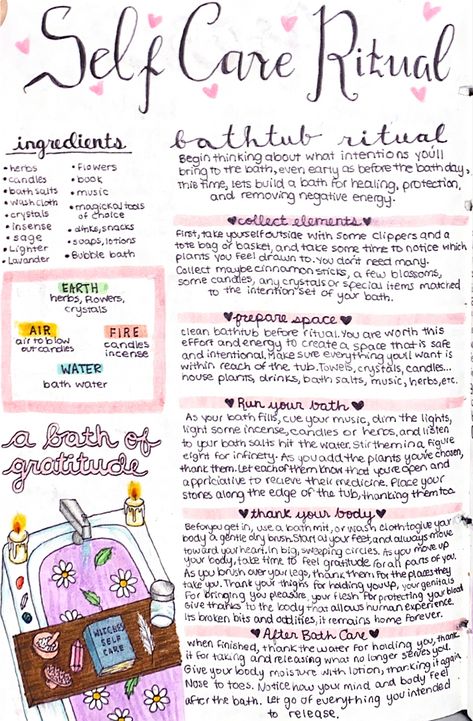 Self Care Ritual
ingredients
• herbs
• candles
• bath salts
• wash cloth
• crystals
• insense
• sage
• Lighter
• Lavander
• Flowers
• book
• music
• magickal tools
of choice
• drinks, snacks
• soaps, lotions
• Bubble bath
EARTH
herbs, flowers,
crystals
AIR
air to blow
out candles
FIRE
candles
incense
WATER
bath water
a bath of
gratitude
WITCHES
SELF
CARE
bathtub ritual
Begin thinking about what intentions you'll
bring to the bath, even early as before the bath day.
This time, lets build a bath for healing, protection,
and removing negative energy.
collect elements
First, take yourself outside with some clippers and a
tote bag or basket, and take some time to notice which
plants you feel drawn to. You don't need many.
Collect maybe cinnamon sticks, a few blossoms,
some candles, any crystals or special items matched
to the intention set of your bath.
prepare space
clean bathtub before ritual. You are worth this
effort and energy to create a space that is safe
and intentional. Make sure everything you'll want is
within reach of the tub. Towels, crystals, candles...
house plants, drinks, bath salts, music, herbs, etc.
Run your bath
As your bath fills, cue your music, dim the lights,
light some incense, candles or herbs, and listen
to your bath salts hit the water. Stir them in a figure
eight for infinety. As you add the plants you've chosen,
thank them. Let each of them know that you're open and
appriciative to recieve their medicine. Place your
stones along the edge of the tub, thanking them too.
thank your body
Before you get in, use a bath mit, or wash cloth to give your
body a gentle dry brush. Start at your feet, and always move
toward your heart. In big, sweeping circles. As you move up
your body, take time to feel gratitude for all parts of you.
As you brush over your legs, thank them for the places they
take you. Thank your thighs for holding you up, your genitals
For bringing you pleasure, your flesh for protecting your blood
Give thanks to the body that allows human experience.
Its broken bits and oddities, it remains home forever.
After Bath Care
when finished, thank the water for holding you, thank
it for taking and releasing what no longer serves you.
Give your body moisture with lotion, thanking it again
Nose to toes. Notice how your mind and body feel
after the bath. Let go of everything you intended
to release.